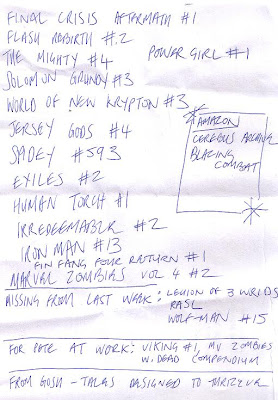 FINAL CRISIS AFTERMATH #1
FLASH REBIRTH #.2
THE MIGHTY #4
POWER GIRL #1
SOLOMON GRUNDY #3
WORLD OF NEW KRYPTON #3
JERSEY GODS #4
SPIDEY #593
EXILES #2
HUMAN TORCH #1
IRREDEEMABLE #2
IRON MAN #13
FIN FANG FOUR RETURN #1
MARVEL ZOMBIES VOL 4 #2
AMAZON
CEREBUS ARCHIVE
BLAZING
COMBAT
MISSING FROM LAST WEEK: LEGION OF 3 WORLDS
RASL
WOLF-MAN #15
FOR PETE AT WORK: VIKING #1, MV ZOMBIES
W. DEAD COMPENDIUM
FROM GOSH - TALES DESIGNED TO THRIZZLE